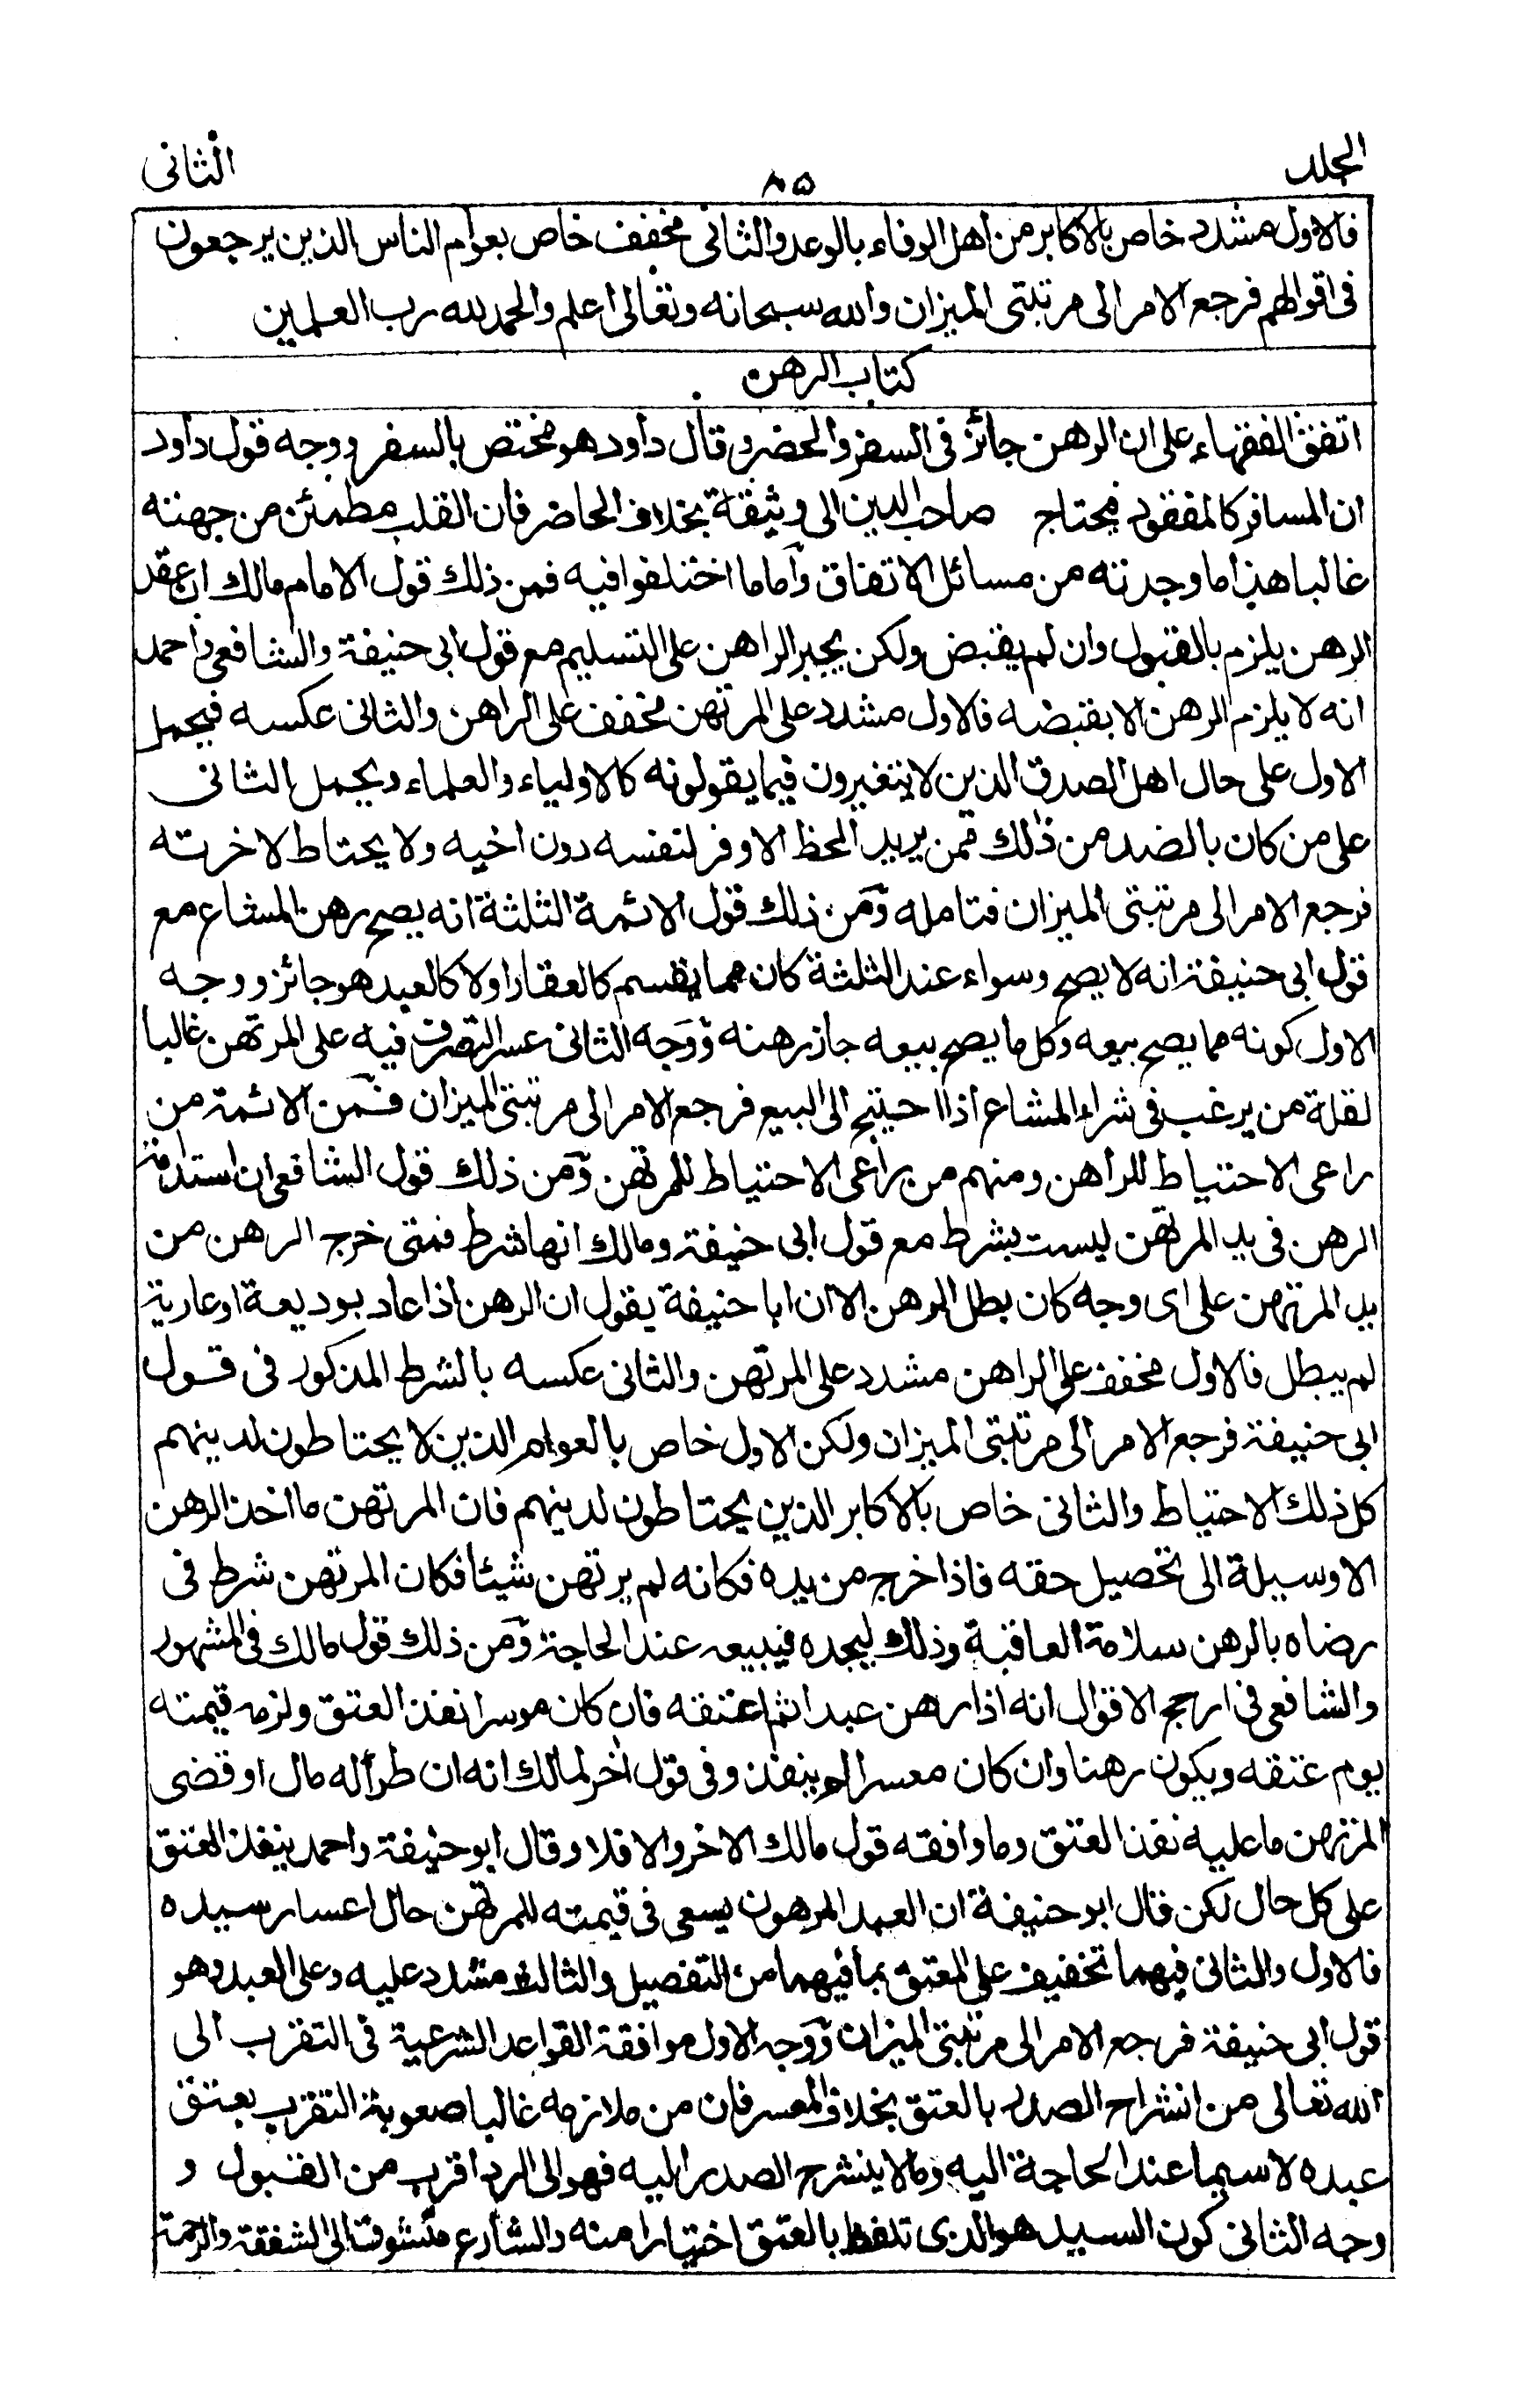 الجلد
٨٥
الثانى
فالاول مشدد خاص بالاكابر من اهل الوفاء بالوعد والثانى مخفف خاص بعوام الناس الذين يرجعون
فى اقوالهم فرجع الامر الى مرتبتى الميزان والله سبحانه وتعالى اعلم والحمد لله رب العلمين
كتاب الرهن
اتفق الفقهاء على ان الرهن جائز فى السفر والحضر وقال داود هو مختص بالسفر ووجه قول داود
ان المسافر كالمفقود فيحتاج صاحب الدين الى وثيقة بخلاف الحاضر فان القلب مطمئن من جهته
غالبا هذا ما وجدته من مسائل الاتفاق وآما ما اختلفوا فيه فمن ذلك قول الامام مالك ان عقد
الرهن يلزم بالقبول وان لم يقبض ولكن يجبر الراهن على التسليم مع قول ابى حنيفة والشافعى واحمد
انه لا يلزم الرهن الا بقبضه فالاول مشدد على المرتهن مخفف على الراهن والثانى عكسه فيحمل
الاول على حال اهل الصدق الذين لا يتغيرون فيما يقولونه كالاولياء والعلماء ويحمل الثانى
على من كان بالضد من ذلك فمن يريد الحظ الاوفر لنفسه دون اخيه ولا يحتاط لاخرته
فرجع الامر الى مرتبتى الميزان فتامله وَمن ذلك قول الائمة الثلثة انه يصح رهن المشاع مع
قول ابى حنيفة انه لا يصح وسواء عند الثلثة كان مما يقسم كالعقار اولا كالعبد هو جائز ووجه
الاول كونه مما يصح بيعه وكل ما يصح بيعه جاز رهنه وَوَجه الثانى عسر التصرف فيه على المرتهن غالبا
لقلة من يرغب فى شراء المشاع اذا احتيج الى البيع فرجع الامر الى مرتبتى الميزان فمن الائمة من
راعى الاحتياط للراهن ومنهم من راعى الاحتياط للمرتهن وَمن ذلك قول الشافعى ان استدامة
الرهن فى يد المرتهن ليست بشرط مع قول ابى حنيفة ومالك انها شرط فمتى خرج الرهن من
يد المرتهن على اى وجه كان بطل الرهن الا ان ابا حنيفة يقول ان الرهن اذا عاد بوديعة او عارية
لم يبطل فالاول مخفف على الراهن مشدد على المرتهن والثانى عكسه بالشرط المذكور فى قول
ابى حنيفة فرجع الامر الى مرتبتى الميزان ولكن الاول خاص بالعوام الذين لا يحتاطون لدينهم
كل ذلك الاحتياط والثانى خاص بالاكابر الذين يحتاطون لدينهم فان المرتهن ما اخذ الرهن
الا وسيلة الى تحصيل حقه فاذا خرج من يده فكانه لم يرتهن شيئا فكان المرتهن شرط فى
رضاه بالرهن سلامة العاقبة وذلك ليجده فيبيعه عند الحاجة وَمن ذلك قول مالك فى المشهور
والشافعى فى ارجح الاقوال انه اذا رهن عبدا ثم اعتقه فان كان موسرا نفذ العتق ولزمه قيمته
يوم عتقه ويكون رهنا وان كان معسرا لم ينفذ وفى قول اٰخر لمالك انه ان طرأ له مال او قضى
المرتهن ما عليه نفذ العتق وما وافقه قول مالك الاخر والا فلا وقال ابو حنيفة واحمد ينفذ العتق
على كل حال لكن قال ابو حنيفة ان العبد المرهون يسعى فى قيمته للمرتهن حال اعسار سيده
فالاول والثانى فيهما تخفيف على المعتق بما فيهما من التفصيل والثالث مشدد عليه وعلى العبد وهو
قول ابى حنيفة فرجع الامر الى مرتبتى الميزان وَوَجه الاول موافقة القواعد الشرعية فى التقرب الى
الله تعالى من انشراح الصدر بالعتق بخلاف المعسر فان من ملازمه غالبا صعوبة التقرب بعتق
عبده لاسيما عند الحاجة اليه وما لا ينشرح الصدر اليه فهو الى الرد اقرب من القبول و
وجه الثانى كون السيد هو الذى تلفظ بالعتق اختيارا منه والشارع متشوف الى الشفقة والرحمة